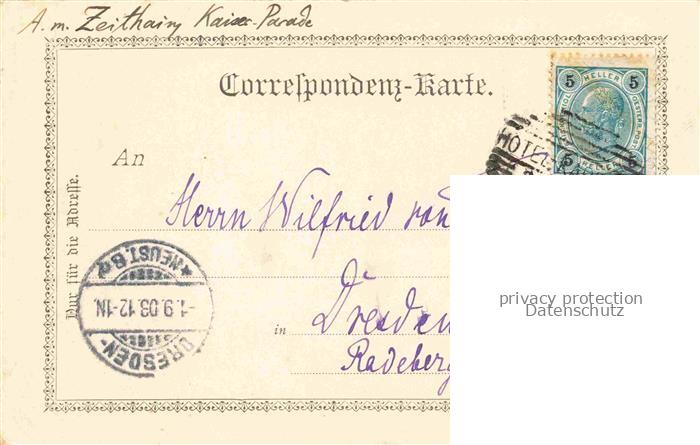 A. m. Zeithain Kaiser-Parade
Correspondenz-Karte.
5 HELLER 5
5 HELLER
HOTEL
An
Nur für die Adresse.
Herrn Wilfried von
in Dresden
Radeberg
DRESDEN-
NEUST. 8
-1.9.03.12-1N.
privacy protection
Datenschutz